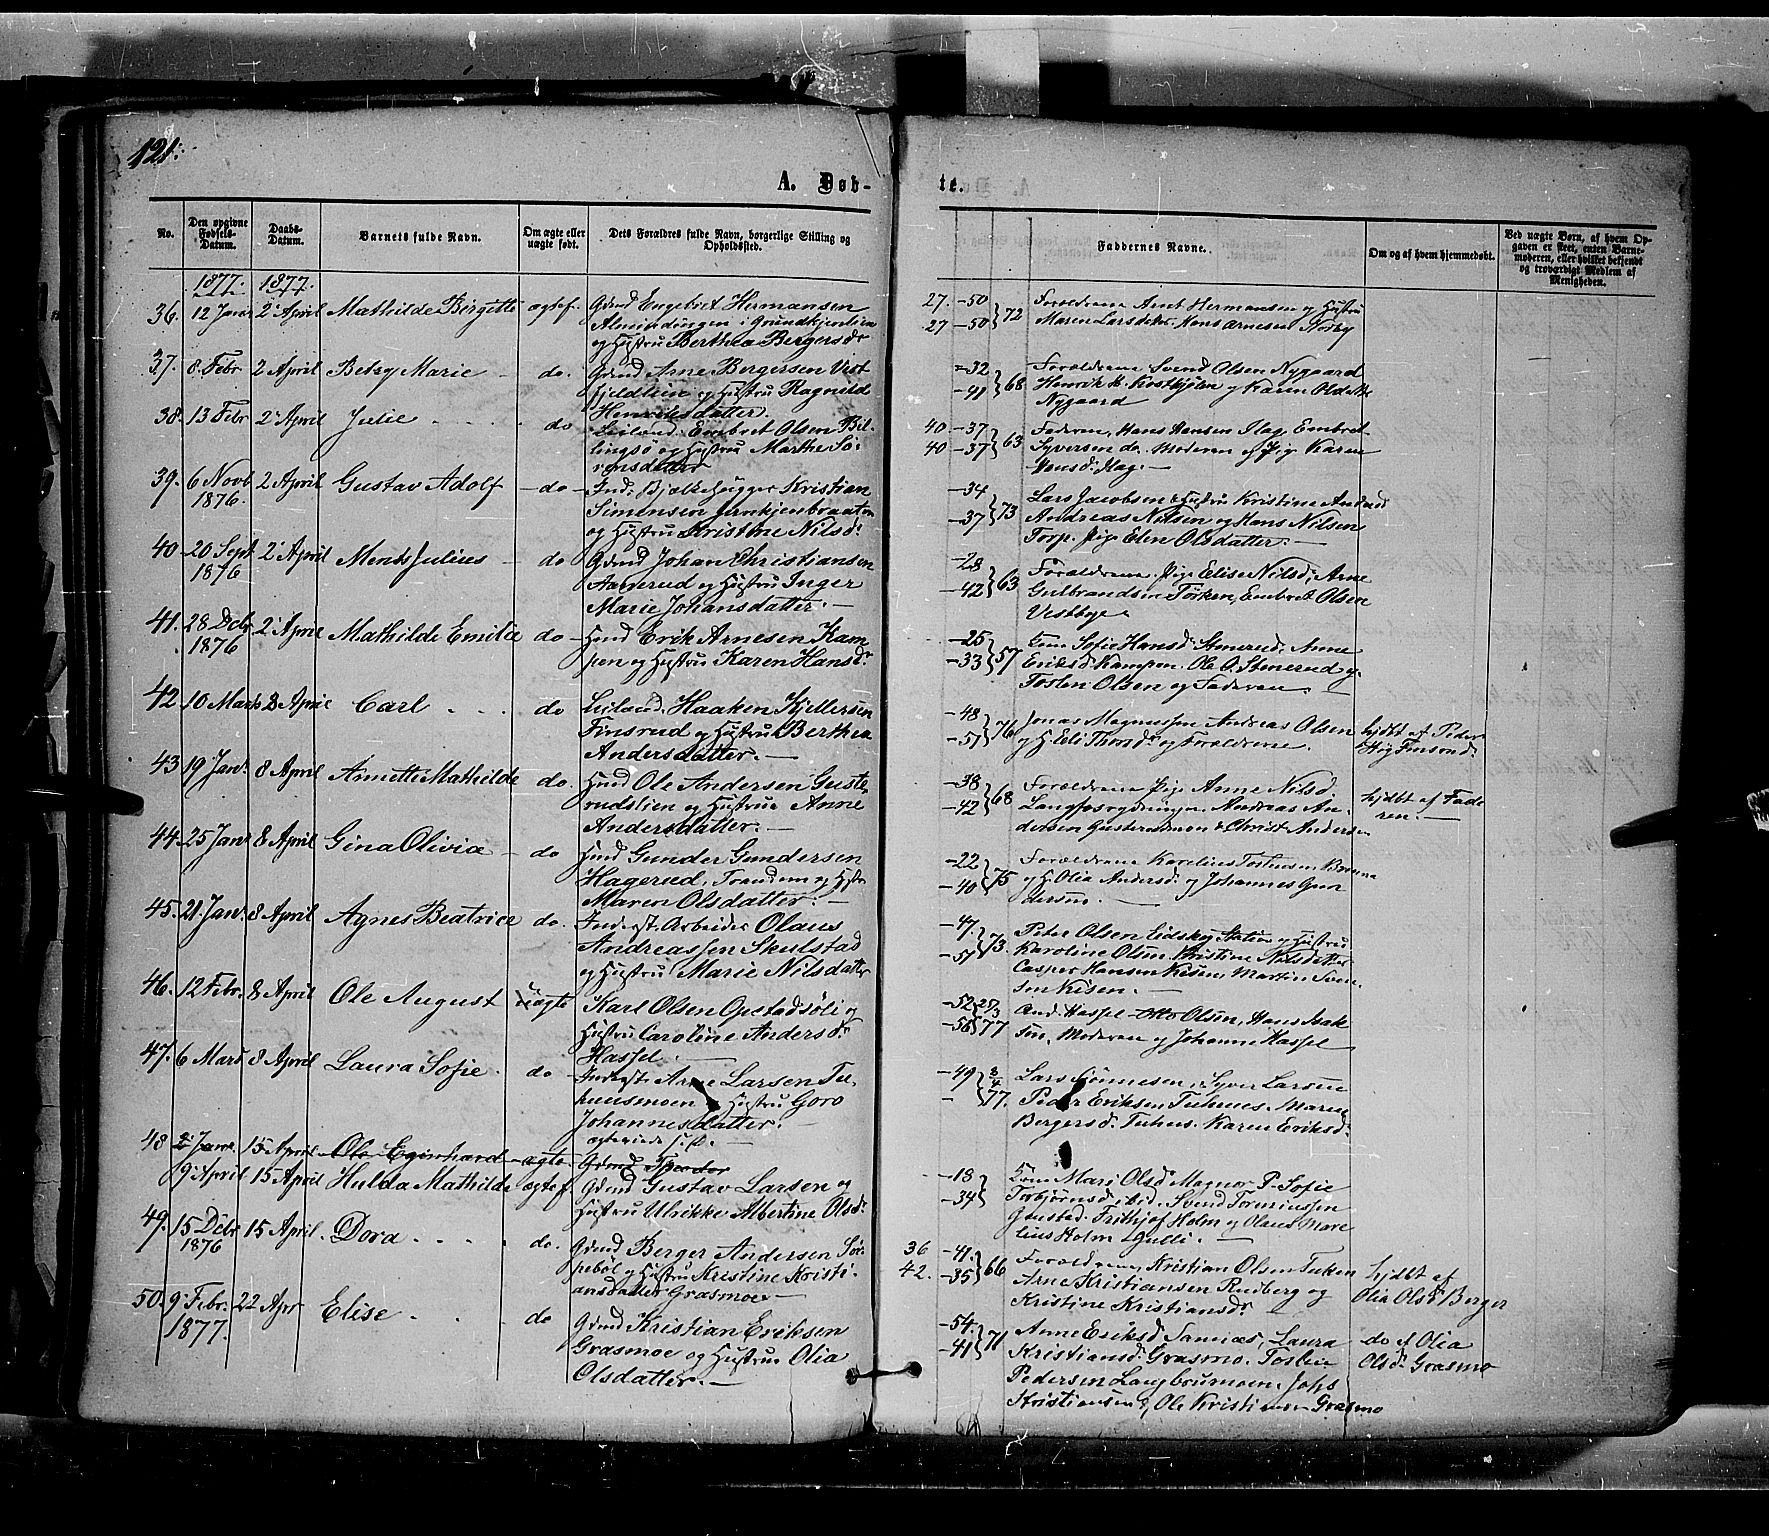 121.
A. Døb-
te.
No.
Den opgivne Fødsels-Datum.
Daabs-Datum.
Barnets fulde Navn.
Om ægte eller uægte født.
Dets Forældres fulde Navn, borgerlige Stilling og Opholdssted.
Faddernes Navne.
Om og af hvem hjemmedøbt.
Ved uægte Børn, af hvem Op-
gaven er skeet, enten Barne-
moderen, eller hvilket bekjendt
og troværdigt Medlem af
Menigheden.
1877. 1877.
36. 12 Janr 2 April Mathilde Birgette ægtef. Gmd Engebret Hermansen
Almindingen i Grundkjernlien
og Hustru Berthea Bergersdr
27. -50 72 Forældrene Arnt Hermansen og Hustru
27 -50 Maren Larsdatter. Hans Arnesen Torby
37. 8 Febr 2 April Betzy Marie - do. Gmd Arne Bergersen Vest
fjeldlien og Hustru Ragnild
Henriksdatter.
-32 68 Forældrene, Svend Olsen Nygaard
-41 Henrik K. og Karen Olsdatter
Nygaard
38. 13 Febr 2 April Julie do Leiland. Embret Olsen Bil
lingsø og Hustru Marthe Sø-
rensdatter
40 -37 63 Faderen, Hans Hansen Flag, Embret
40 -37 Syversen do. Moderen og Pige Karen
Hansd. Flag. -
39. 6 Novb 1876. 2 April Gustav Adolf - do - Ind. Bjælkehugger Kristian
Simensen Jernkjenbraaten
og Hustru Kristine Nilsd.
-34 73 Lars Jacobsen & Hustru Kristine
-37 Andreas Nilsen og Hans Nilsen
Torp. Pige Elen Olsdatter. -
40. 20 Sept. 1876 2 April Julius - do Gmd Johan Christiansen
Aamerud og Hustru Inger
Marie Johansdatter. -
-28 63 Forældrene. Pige Elise Nilsd. Arne
-42 Gulbrandsen Tørken, Embret Olsen
Vestbye.
41. 28 Decb 1876 2 April Mathilde Emilie do - Hmd Erik Arnesen Kam
pen og Hustru Karen Hansd.
-25 57 Tom Sofie Hansd. Stmerud. Anne
-33 Eriksd. Kampen. Ole O. Stmerud og
Tosten Olsen og Faderen.
42. 10 Marts 8 April Carl do Leiland. Haaken Kjellersen
Finsrud og Hustru Berthea
Andersdatter. -
-48 76 Jonas Magnussen Andreas Olsen
-51 og H. Eli Thorsdr og Forældrene.
hjdbt af Peder
Finsrud.
43 19 Janr. 8 April Annette Mathilde do. Hmd Ole Andersen Guste
rudslien og Hustru Anne
Andersdatter. -
-38 68 Forældrene Pige Anne Nilsd.
-42 Andreas An
dersen Gusterudmon & Christ. Andersn
hjdbt af Fade
ren. -
44. 25 Janr 8 April Gina Olivia - do Hmd Gunder Gundersen
Hagerud, og Hustru
Maren Olsdatter. -
-22 75 Forældrene Karelius Tostensen
-40 og H. Olia Andersd. og Johannes Gun
dersmo. -
45. 21 Janr 8 April Agnes Beatrice do. Inderst. Arbeider Olaus
Andreassen Skulstad
og Hustru Marie Nilsdatter
-47. 73. Peter Olsen Eidskog Station og Hustru
-57 Karoline Olsen. Kristine Nilsdatter
Casper Hansen Kisen, Martin Sven
sen Kisen. -
46. 12 Febr. 8 April Ole August uægte Karl Olsen Opstadsøli og
Hustru Caroline Andersdr
Hassel. -
-52 25/3 And. Hassel Otto Olsen, Hans Isak
-56 77 sen, Moderen og Johanne Hassel
47. 6 Mars 8 April Laura Sofie do Inderst. Arne Larsen Tu-
huusmoen og Hustru Goro
Johannesdatter. -
-49 3/4 Lars Sønnesen, Syver Larsen
- 77. Peder Eriksen Tuhuus. Maren
Bergersd. Tuhus. Karen Eriksd.
48 2 Janr. 15 April Ole Egenhard ægte. Gmd
9 April 15 April Hulda Mathilde ægtef. Gmd Gustav Larsen og
Hustru Ulrikke Albertine Olsd.
-18 Tom Mari Olsd. Magnor P. Sofie
-34 Torbjørnsd. ibid. Svend Torenssen
Gaustad. Frithjof Holm og Olaus Mare
lius Holm Gulli. -
49. 15 Decbr 1876 15 April. Dora do. Gmd Berger Andersen Sø-
pebøl og Hustru Kristine Kristi-
ansdatter Grasmoe -
36 -41. 66 Forældrene, Kristian Olsen Tuken
42. -35 Arne Kristiansen Rudberg og
Kristine Kristiansdr
hjdbt af
Olia Olsdr Berger
50. 9 Febr. 1877. 22 Apr Elise do Gmd Kristian Eriksen
Grasmoe og Hustru Olia
Olsdatter. -
-54. 71 Anne Eriksd. Laura
-41 Kristiansd. Grasmo. Tosten
Pedersen Langbrumoen. Johs
Kristiansen og Ole Kristiansen Grasmo
do af Olia
Olsd. Grasmo